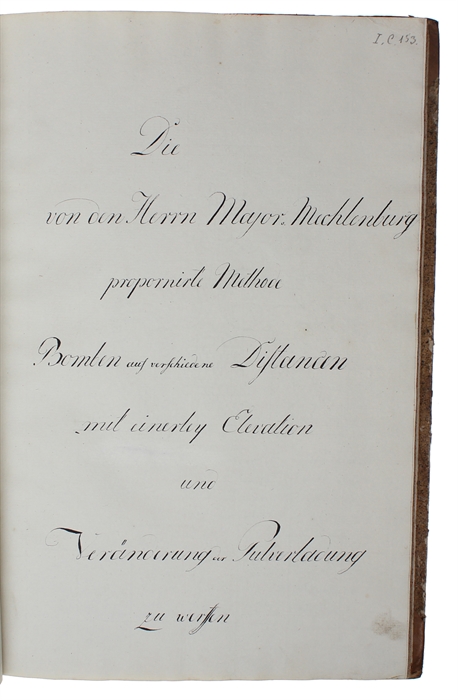 I, C. 153.
Die
von den Herrn Major v. Mechlenburg
propornirte Methode
Bomben auf verschiedene Distancen
mit einerley Elevation
und
Veränderung der Pulverladung
zu werffen